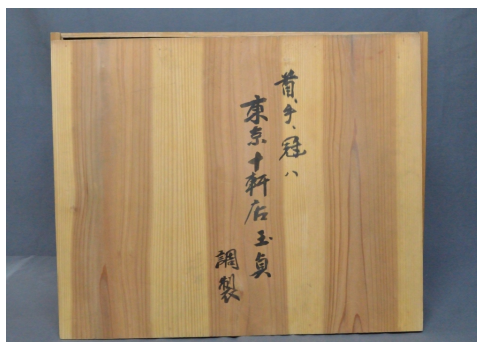 首、手、冠ハ
東京十軒店玉貞
調製